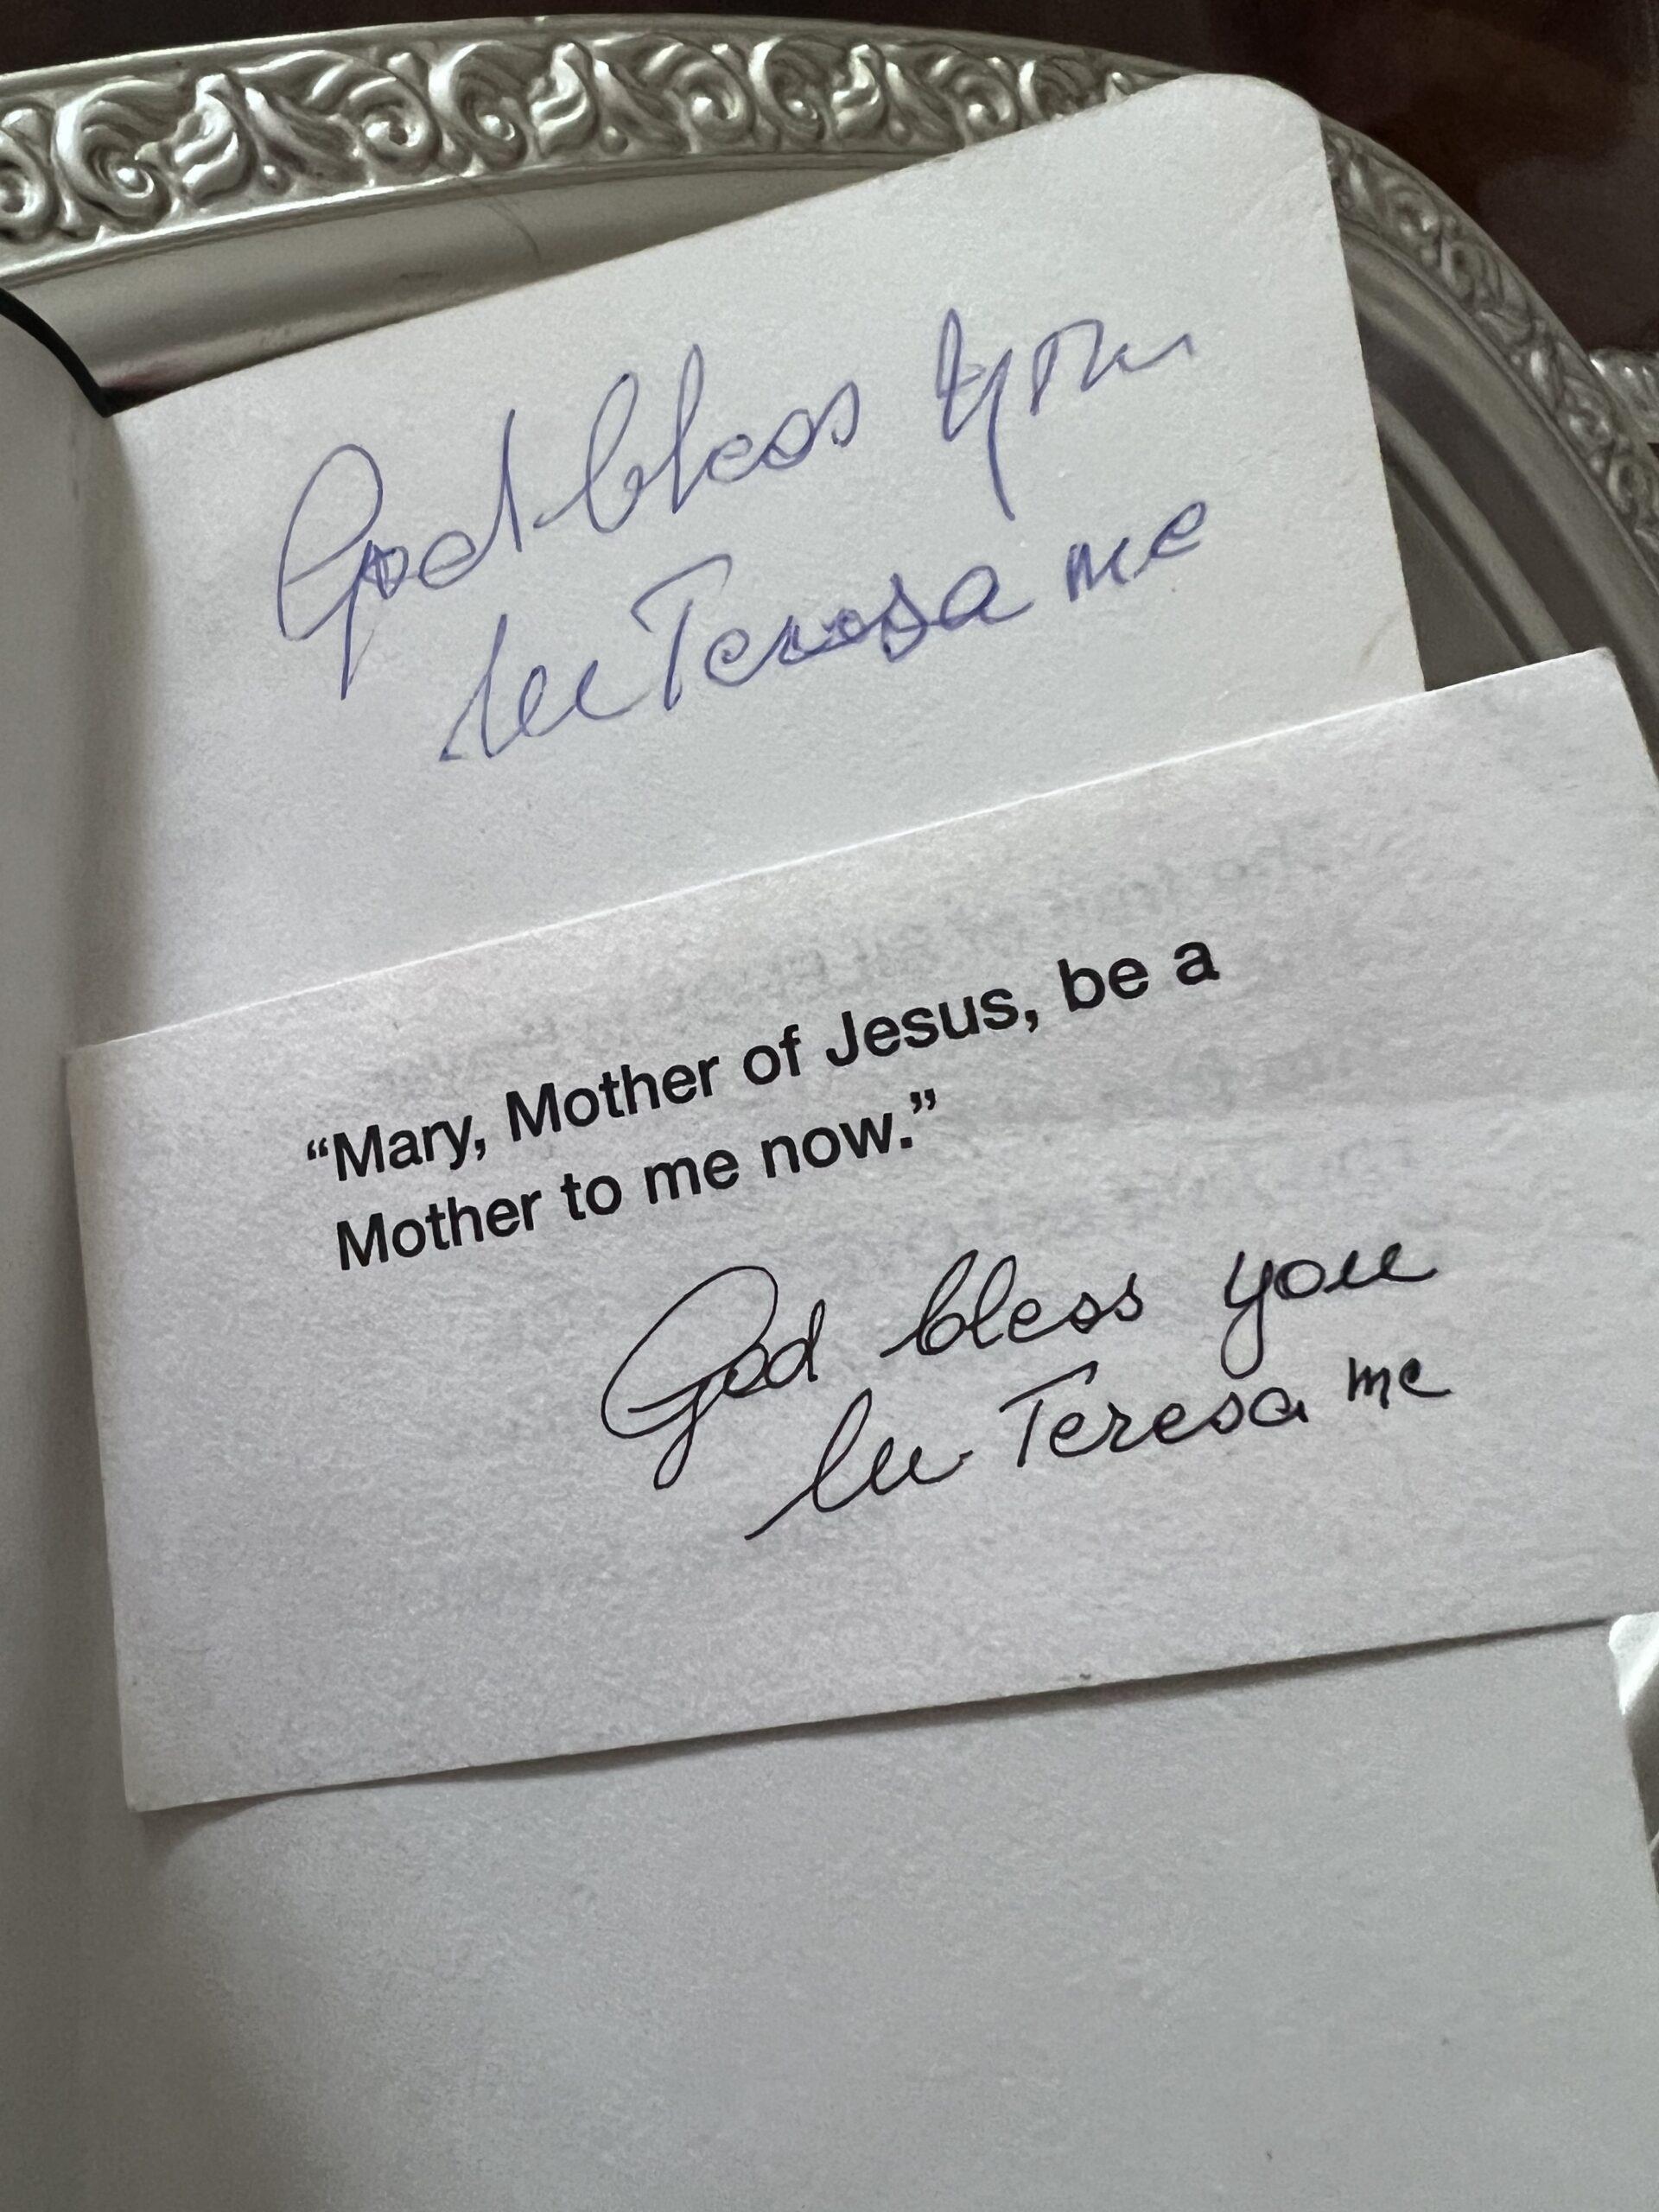 God bless you
lu Teresa mc
“Mary, Mother of Jesus, be a
Mother to me now.”
God bless you
lu Teresa mc